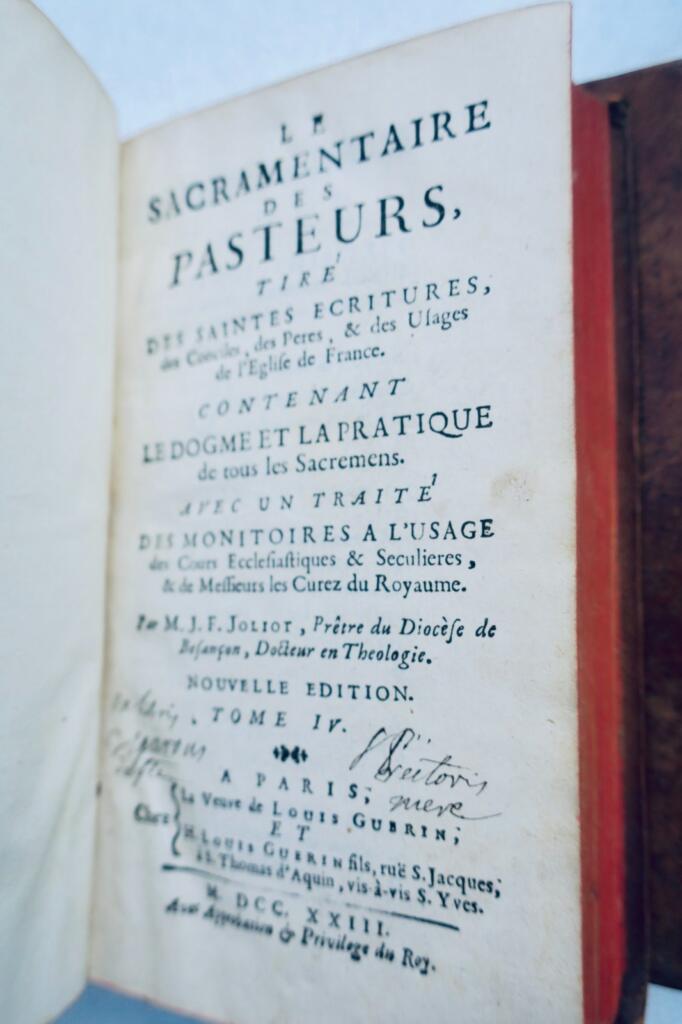 LE
SACRAMENTAIRE
DES
PASTEURS,
TIRE'
DES SAINTES ECRITURES,
des Conciles, des Peres, & des Uſages
de l'Egliſe de France.
CONTENANT
LE DOGME ET LA PRATIQUE
de tous les Sacremens.
AVEC UN TRAITE'
DES MONITOIRES A L'USAGE
des Cours Eccleſiaſtiques & Seculieres,
& de Meſſieurs les Curez du Royaume.
Par M. J. F. JOLIOT, Prêtre du Diocèſe de
Beſançon, Docteur en Theologie.
NOUVELLE EDITION.
TOME IV.
A PARIS;
Chez
La Veuve de LOUIS GUERIN;
ET
H. LOUIS GUERIN fils, ruë S. Jacques,
à S. Thomas d'Aquin, vis-à-vis S. Yves.
M. DCC. XXIII.
Avec Approbation & Privilege du Roy.